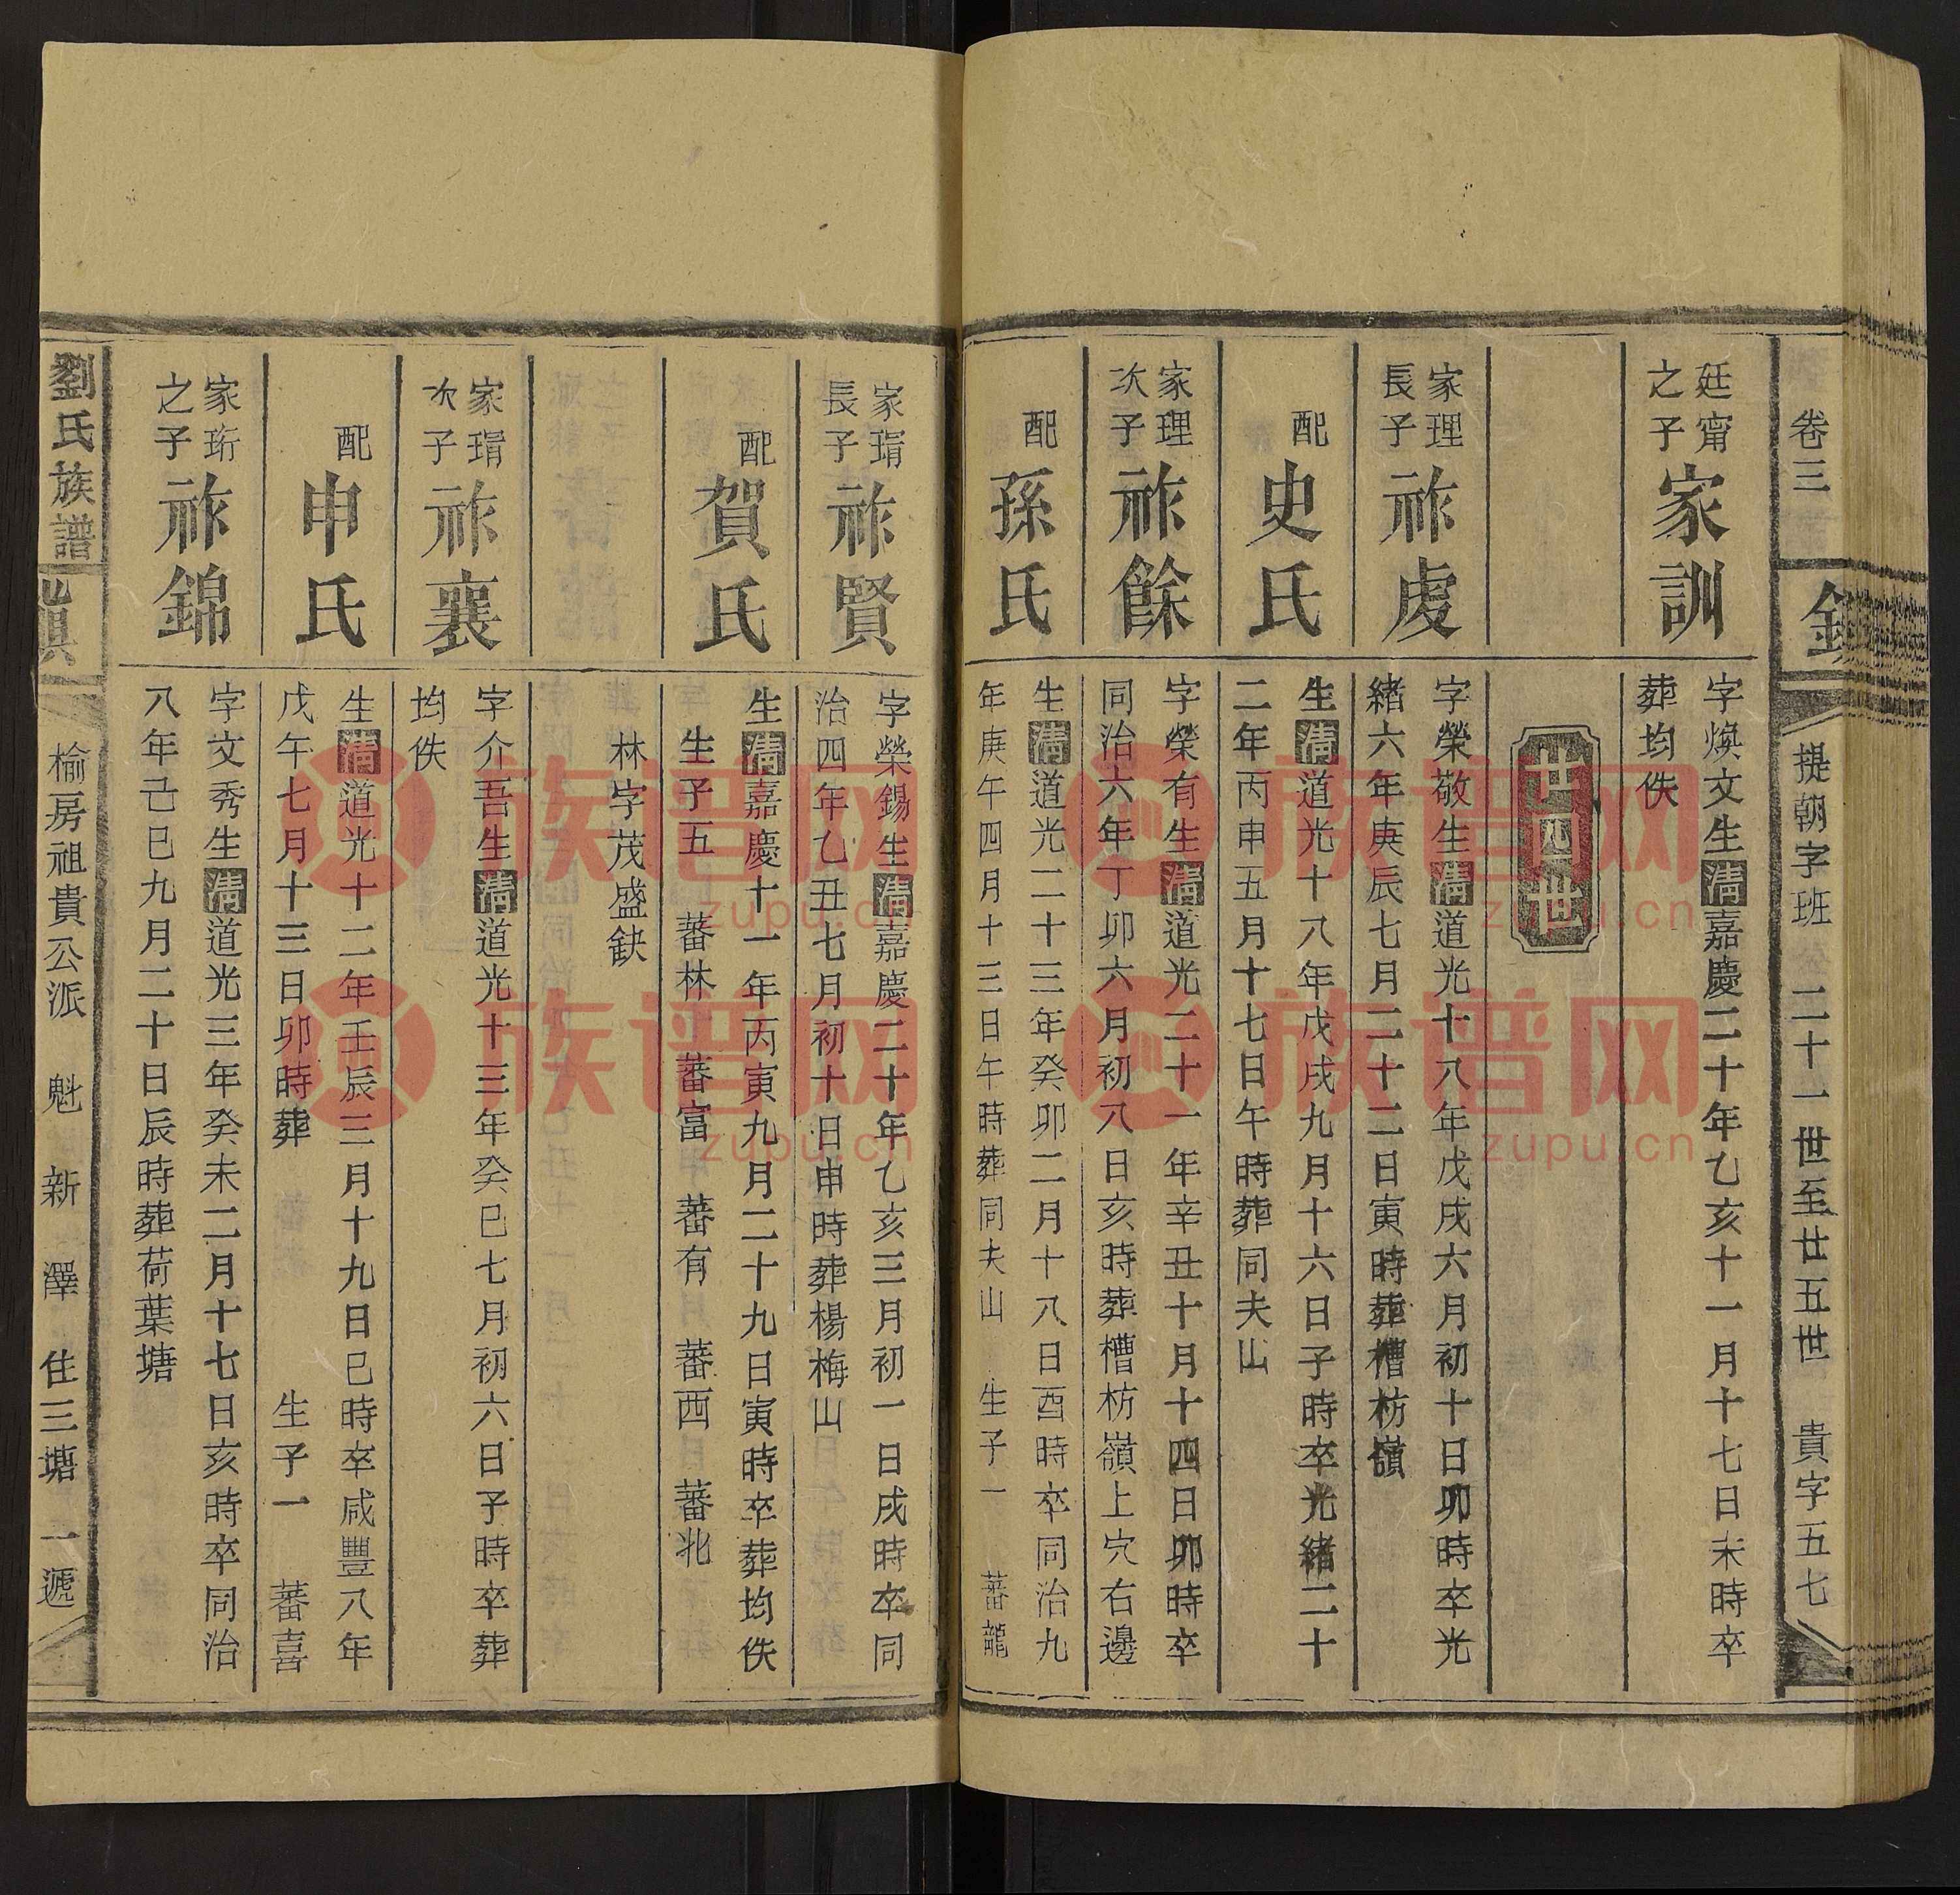 卷三
提朝字班
二十一世至廿五世
貴字五七
廷甯之子
家訓
字煥文生清嘉慶二十年乙亥十一月十七日未時卒
葬均佚
家理長子
祚虔
字榮敬生清道光十八年戊戌六月初十日卯時卒光
緒六年庚辰七月二十二日寅時葬槽枋嶺
配
史氏
生清道光十八年戊戌九月十六日子時卒光緒二十
二年丙申五月十七日午時葬同夫山
家理次子
祚餘
字榮有生清道光二十一年辛丑十月十四日卯時卒
同治六年丁卯六月初八日亥時葬槽枋嶺上穴右邊
配
孫氏
生清道光二十三年癸卯二月十八日酉時卒同治九
年庚午四月十三日午時葬同夫山 生子一 蕃龍
家瑨長子
祚賢
字榮錫生清嘉慶二十年乙亥三月初一日戌時卒同
治四年乙丑七月初十日申時葬楊梅山
配
賀氏
生清嘉慶十一年丙寅九月二十九日寅時卒葬均佚
生子五 蕃林 蕃富 蕃有 蕃西 蕃北
林字茂盛缺
家瑨次子
祚襄
字介吾生清道光十三年癸巳七月初六日子時卒葬
均佚
配
申氏
生清道光十二年壬辰三月十九日巳時卒咸豐八年
戊午七月十三日卯時葬 生子一 蕃喜
家珩之子
祚錦
字文秀生清道光三年癸未二月十七日亥時卒同治
八年己巳九月二十日辰時葬荷葉塘
劉氏族譜
榆房祖貴公派 魁 新 澤 住三塘 一遞
族谱网
zupu.cn
族谱网
zupu.cn
族谱网
zupu.cn
族谱网
zupu.cn